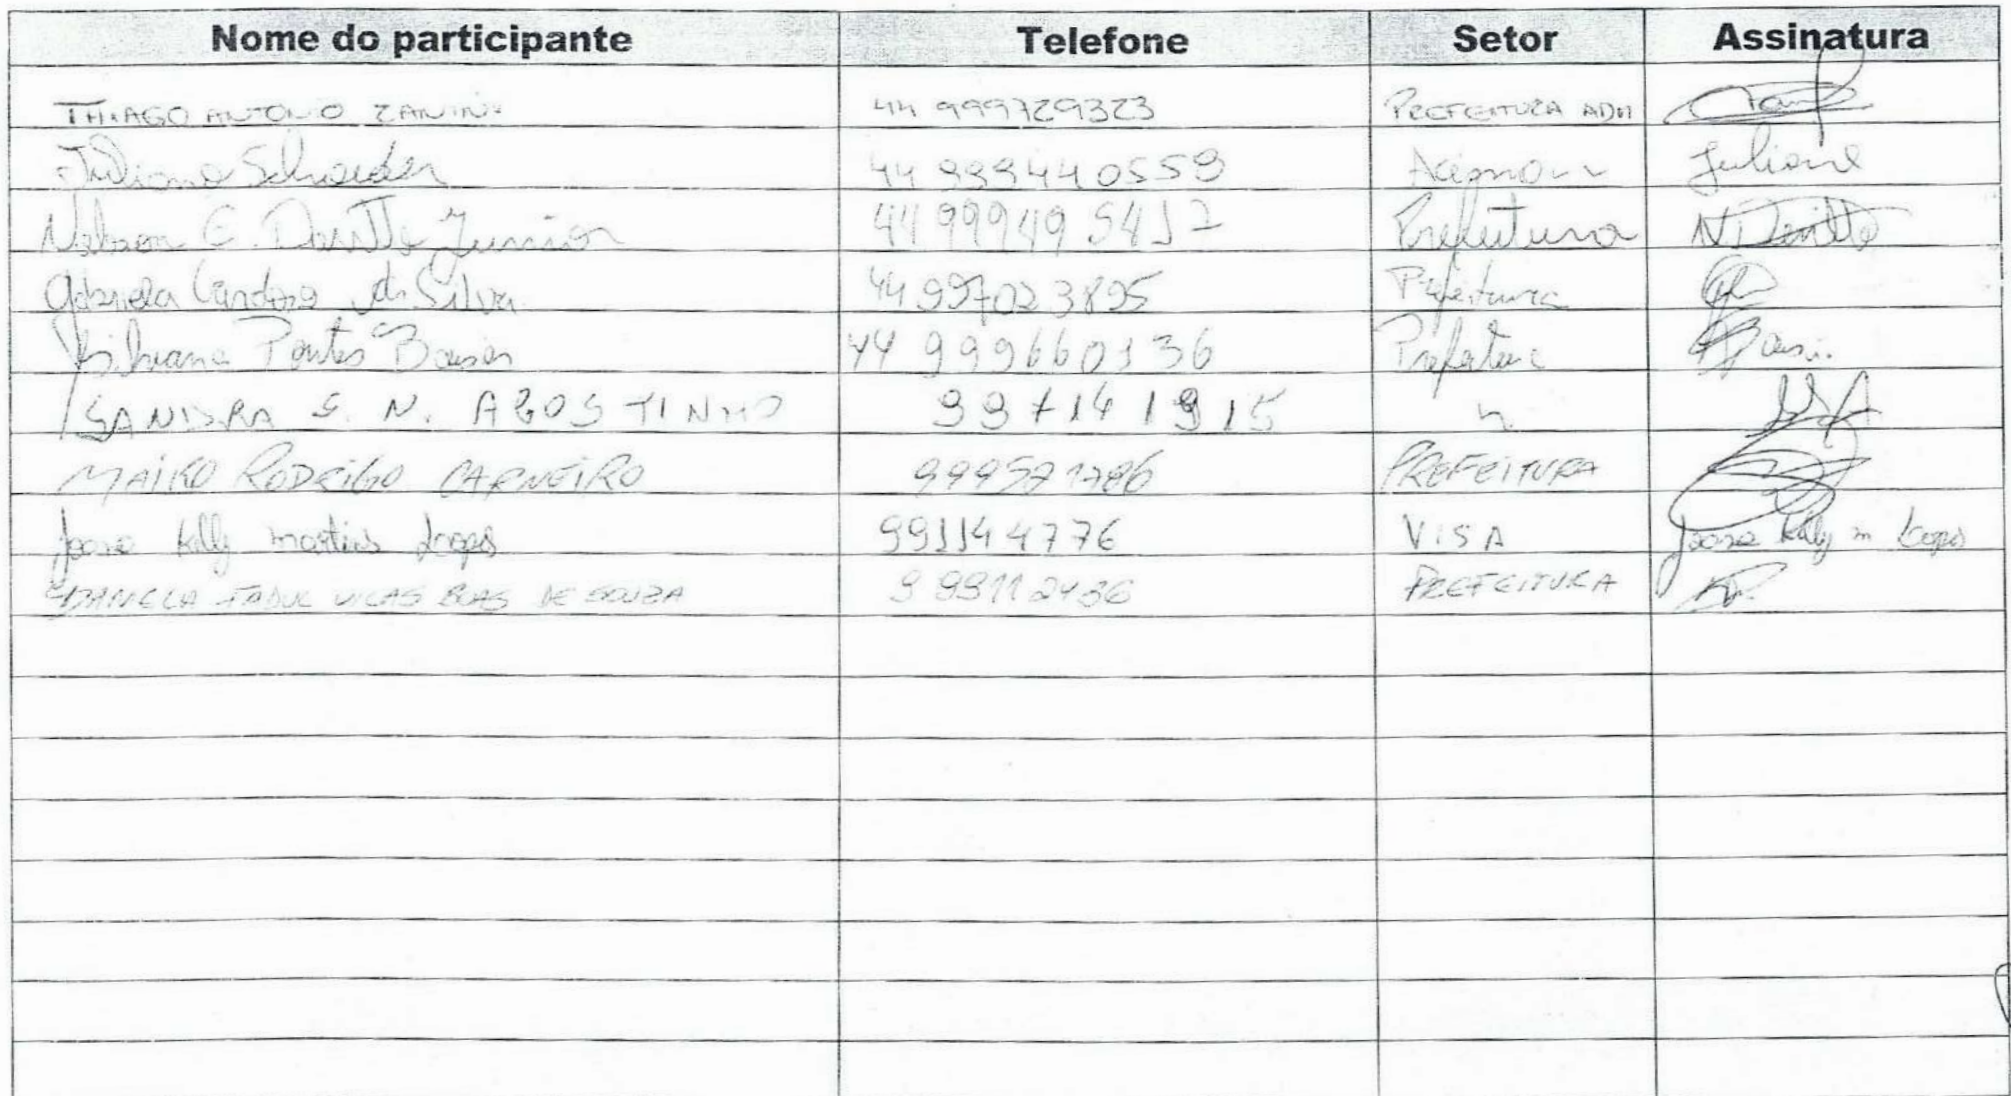 Nome do participante Telefone Setor Assinatura
THIAGO ANTONIO ZANINI 44 999729323 PREFEITURA ADM
Juliana Schoeder 44 999440559 Juliane
Nelson E. Junior 44 999495412 Prefeitura
Gabriela Cardoso da Silva 44 997023895 Prefeitura
Pontes 44 999660136
SANDRA S. N. AGOSTINHO 997141915 "
MAIKO RODRIGO CARNEIRO 999571786 PREFEITURA
Kelly martins Lopes 991144776 VISA Kelly m Lopes
DANIELA VILAS BOAS DE SOUZA 9 99112436 PREFEITURA